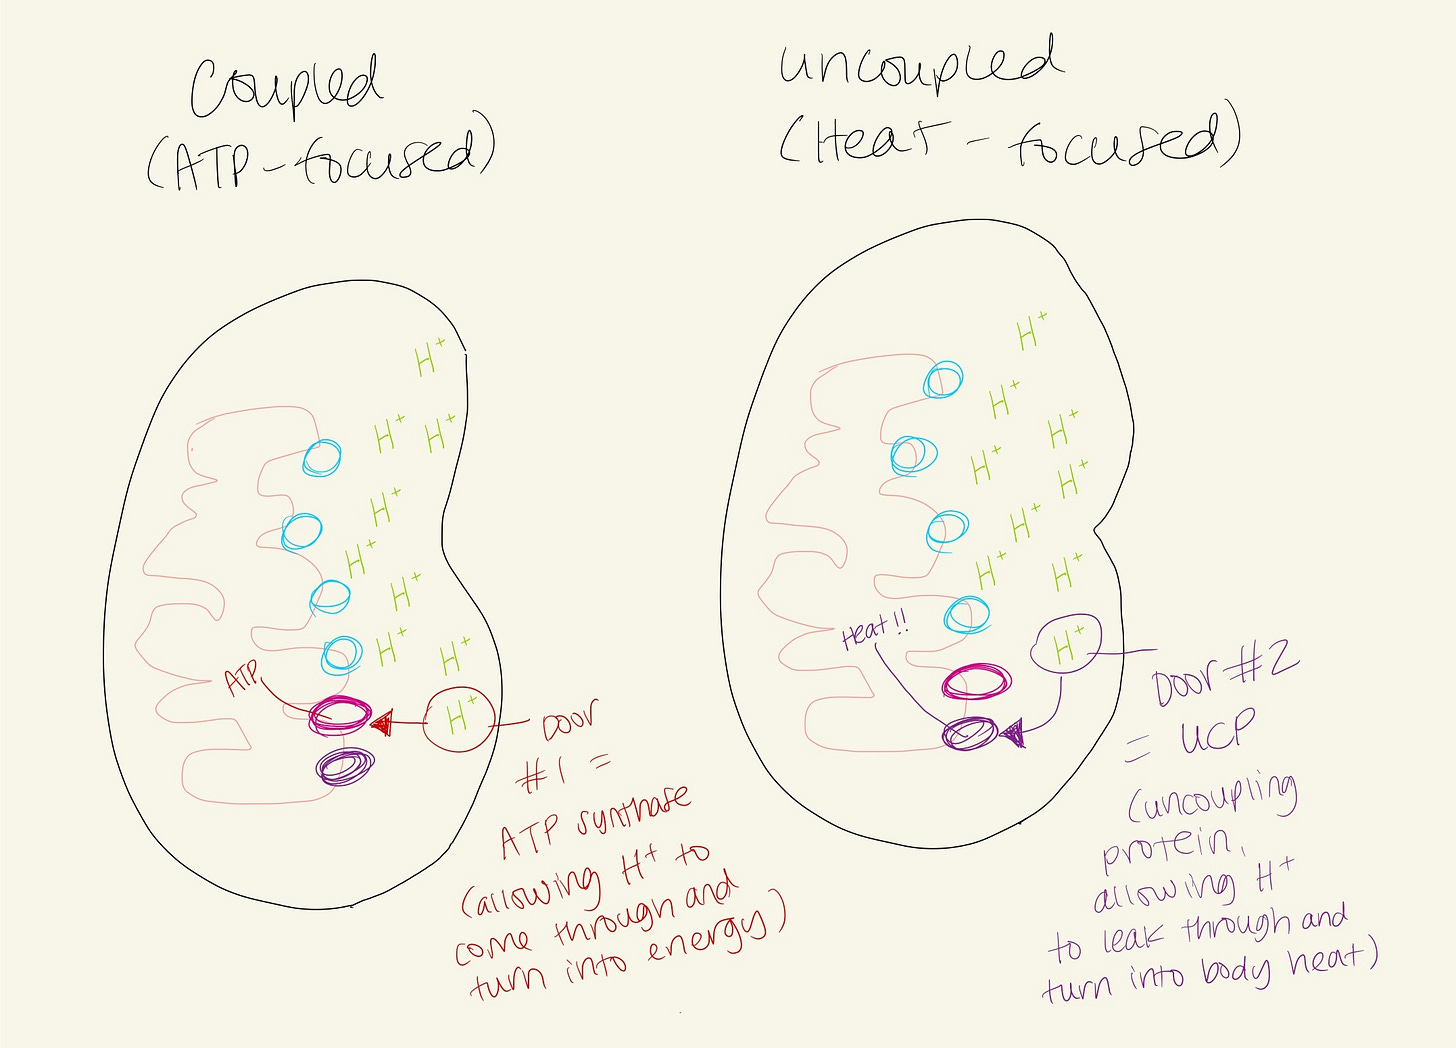 Coupled
(ATP-focused)
H+
H+
H+
H+
H+
H+
H+
H+
H+
ATP
Door
#1 =
ATP synthase
(allowing H+ to
come through and
turn into energy)
uncoupled
(Heat-focused)
H+
H+
H+
H+
H+
H+
H+
H+
H+
Heat!!
Door #2
= UCP
(uncoupling
protein,
allowing H+
to leak through and
turn into body heat)